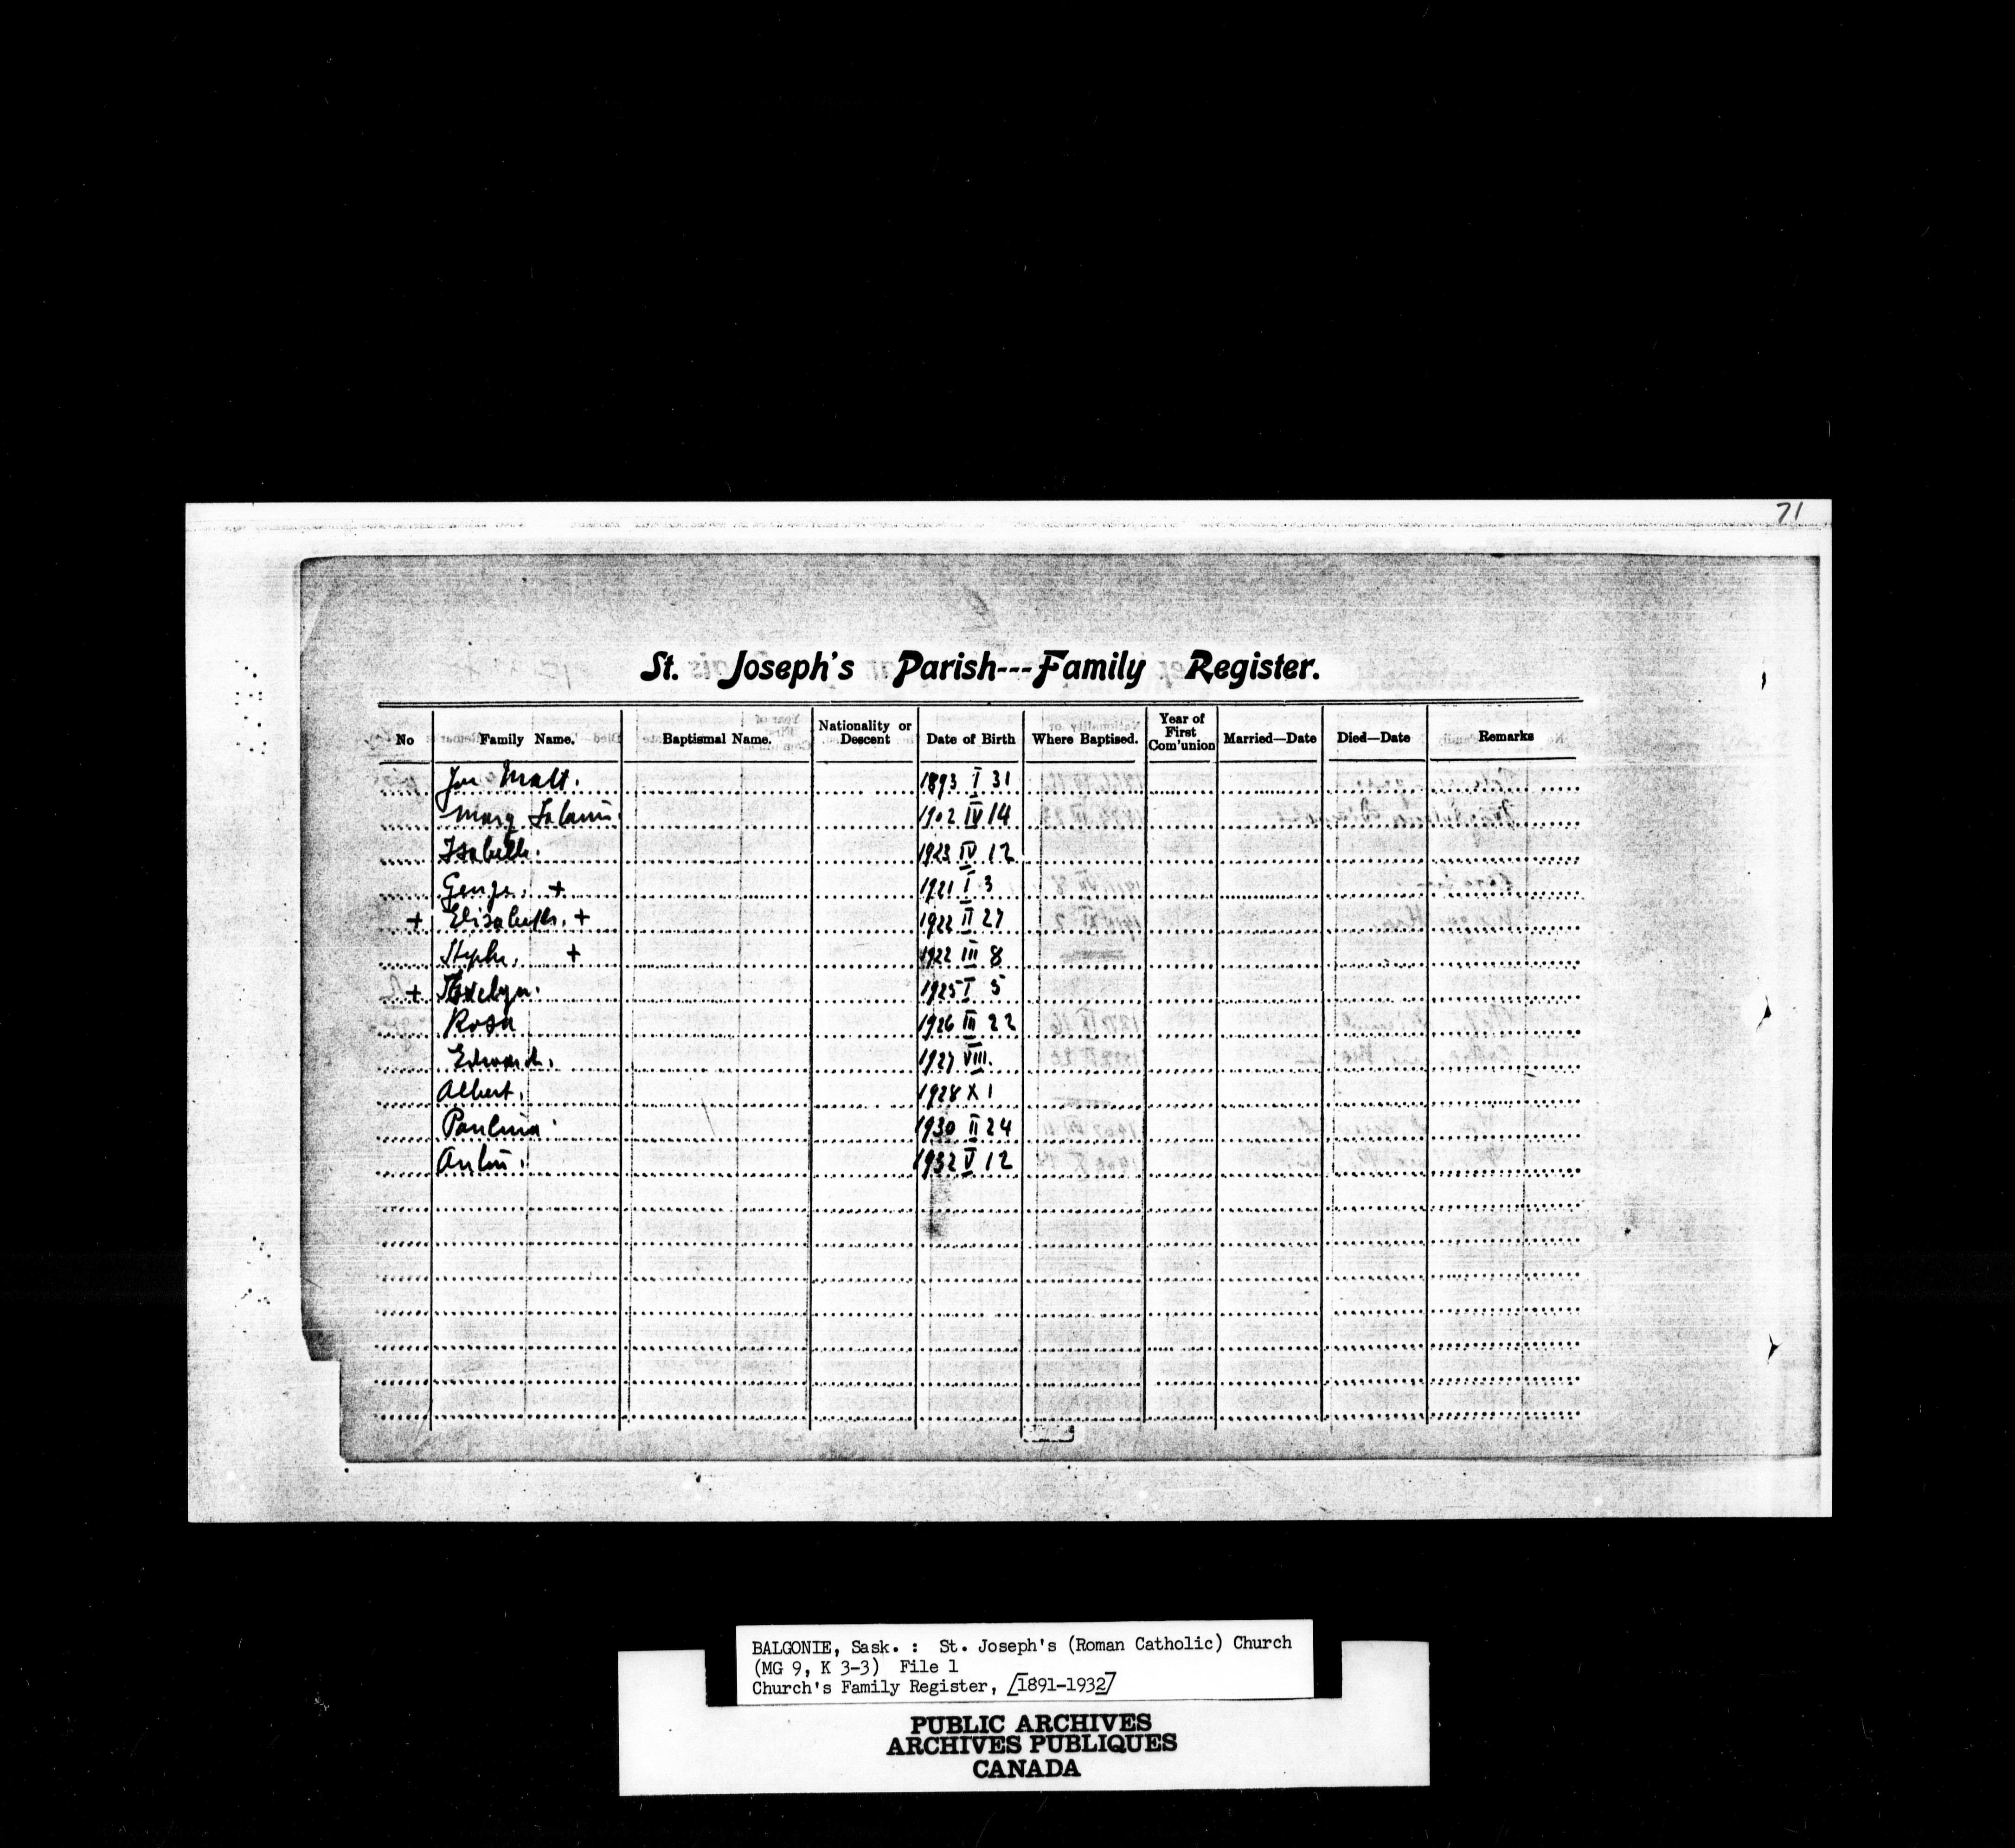 71
St. Joseph's Parish---Family Register.
No Family Name. Baptismal Name. Nationality or Descent Date of Birth Where Baptised. Year of First Com'union Married—Date Died—Date Remarks
Jos Malt. 1893 I 31
Mary 1902 IV 14
Isabella. 1923 IV 12
George. + 1921 I 3
+ Elisabeth. + 1922 II 27
Steph. + 1922 III 8
+ Evelyn. 1925 I 5
Rosa 1926 III 22
Edward. 1927 VIII.
Albert. 1928 X 1
Paulina 1930 II 24
Anton. 1932 V 12
BALGONIE, Sask. : St. Joseph's (Roman Catholic) Church
(MG 9, K 3-3) File 1
Church's Family Register, [1891-1932]
PUBLIC ARCHIVES
ARCHIVES PUBLIQUES
CANADA